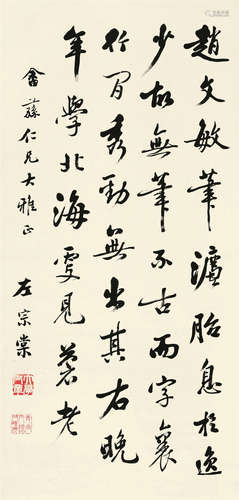 趙文敏筆濃胎息於逸
少故無筆不古而字裏
行間秀勁無出其右晚
年學北海更見蒼老
畬蓀仁兄大雅正
左宗棠